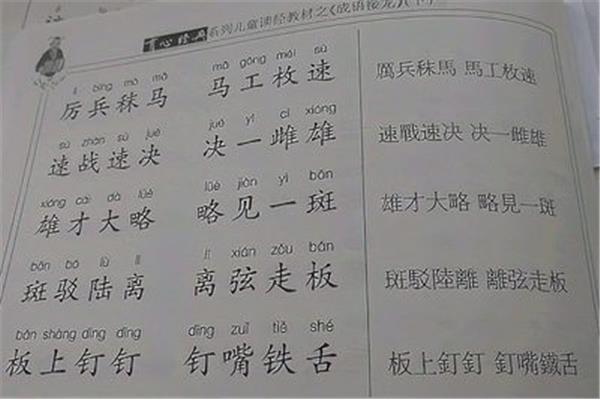 育心经典 系列儿童读经教材之《成语接龙》(下)
lì bīng mò mǎ mǎ gōng méi sù
厉兵秣马 马工枚速 厲兵秣馬 馬工枚速
sù zhàn sù jué jué yì cí xióng
速战速决 决一雌雄 速戰速决 决一雌雄
xióng cái dà lüè lüè jiàn yì bān
雄才大略 略见一斑 雄才大略 略見一斑
bān bó lù lí lí xián zǒu bǎn
斑驳陆离 离弦走板 斑駁陸離 離弦走板
bǎn shàng dìng dīng dīng zuǐ tiě shé
板上钉钉 钉嘴铁舌 板上釘釘 釘嘴鐵舌